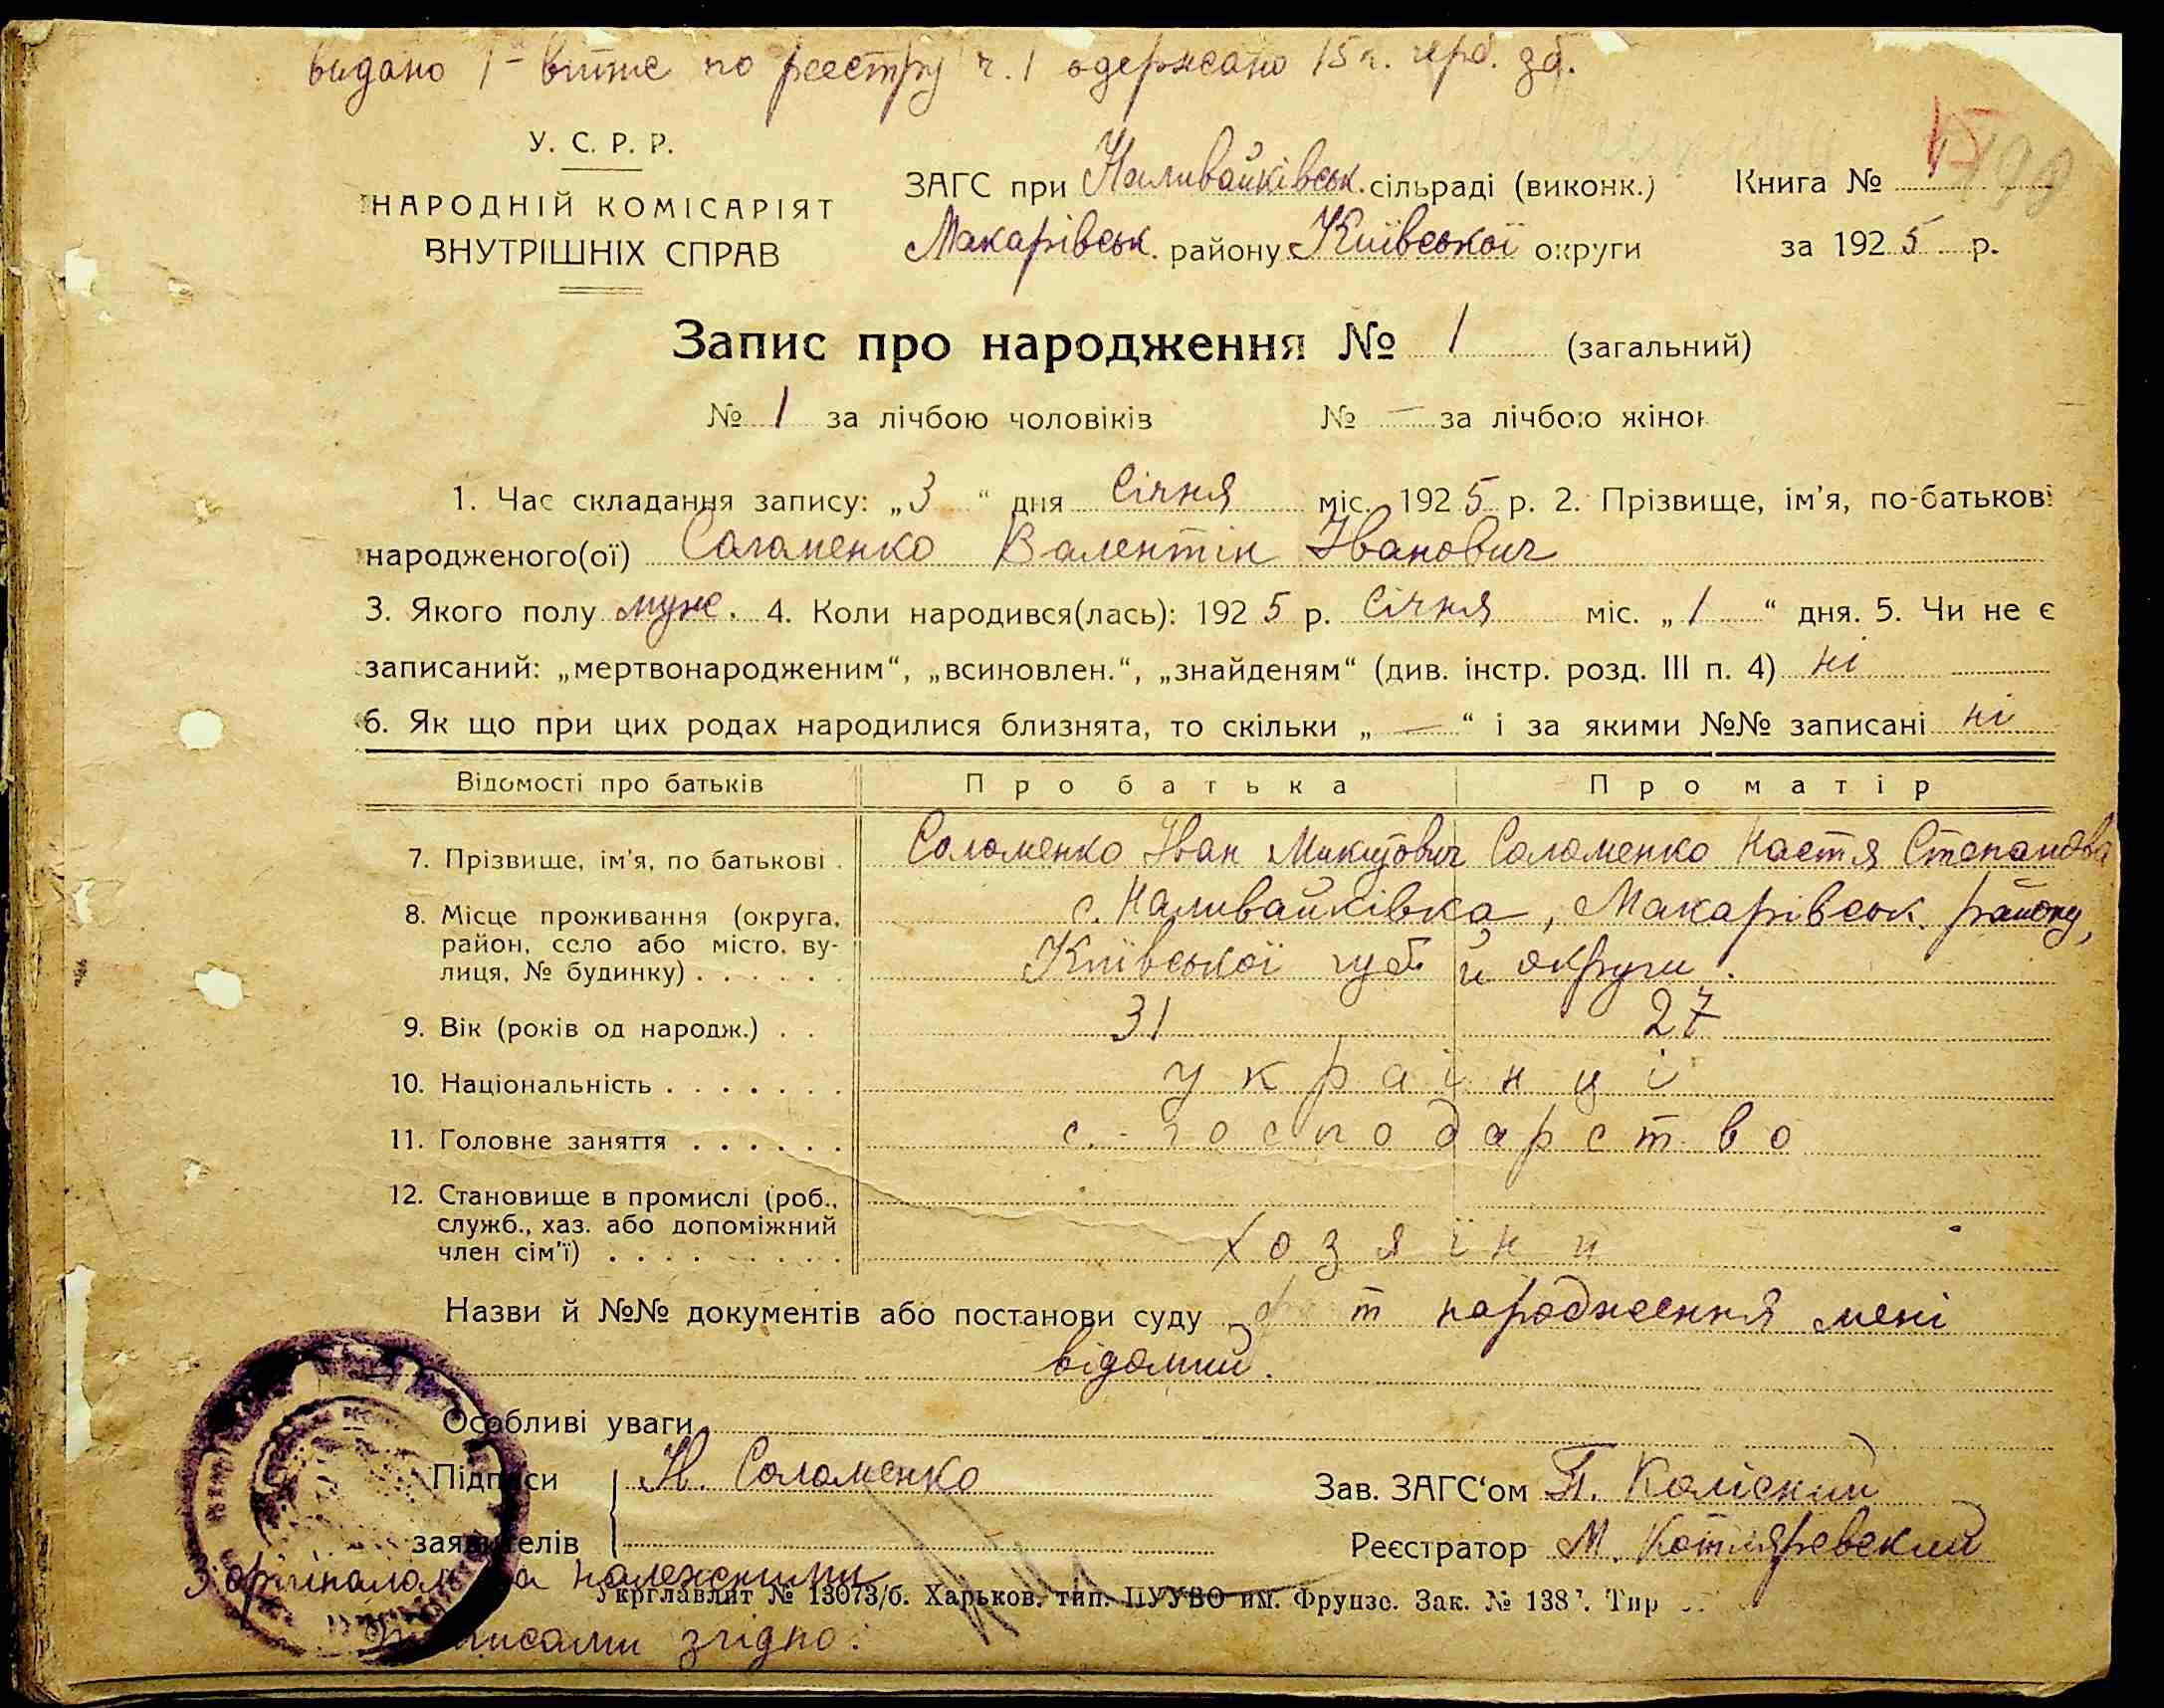 видано 1 витяг по реєстру ч. 1 одержано 15 к. герб. зб.
У. С. Р. Р.
НАРОДНІЙ КОМІСАРІЯТ
ВНУТРІШНІХ СПРАВ
ЗАГС при Наливайківськ. сільраді (виконк.)
Макарівськ. району Київської округи
Книга №
за 1925 р.
Запис про народження № 1 (загальний)
№ 1 за лічбою чоловіків № — за лічбою жінок
1. Час складання запису: „3“ дня Січня міс. 1925 р. 2. Прізвище, ім'я, по-батькові
народженого(ої) Соломенко Валентін Іванович
3. Якого полу муже. 4. Коли народився(лась): 1925 р. Січня міс. „1“ дня. 5. Чи не є
записаний: „мертвонародженим“, „всиновлен.“, „знайденям“ (див. інстр. розд. III п. 4) ні
6. Як що при цих родах народилися близнята, то скільки „—“ і за якими №№ записані ні
Відомості про батьків Про батька Про матір
7. Прізвище, ім'я, по батькові . Соломенко Іван Микитович Соломенко Настя Степанова
8. Місце проживання (округа, с. Наливайківка, Макарівськ. району,
район, село або місто, ву-
лиця, № будинку) . . . . . . Київської губ. й округи.
9. Вік (років од народж.) . . 31 27
10. Національність . . . . . . . українці
11. Головне заняття . . . . . . с.-господарство
12. Становище в промислі (роб.,
служб., хаз. або допоміжний
член сім'ї) . . . . . . . . . хозяїни
Назви й №№ документів або постанови суду народження мені
відомий.
Особливі уваги
Підписи Н. Соломенко
заявителів
Зав. ЗАГС‘ом П.
Реєстратор М. Котляревский
З оригіналом та належними
Укрглавлит № 13073/б. Харьков. тип. ЦУУВО им. Фрунзе. Зак. № 138 Тир
підписами згідно: